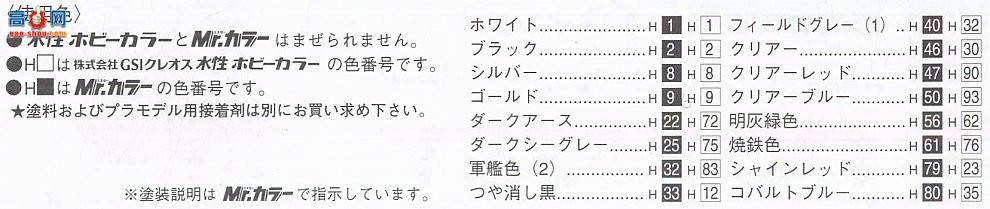 〈使用色〉
●水性ホビーカラーとMr.カラーはまぜられません。
●H□は株式会社GSIクレオス水性ホビーカラーの色番号です。
●H■はMr.カラーの色番号です。
★塗料およびプラモデル用接着剤は別にお買い求め下さい。
※塗装説明はMr.カラーで指示しています。
ホワイト........................H 1 H 1
ブラック........................H 2 H 2
シルバー........................H 8 H 8
ゴールド........................H 9 H 9
ダークアース..................H 22 H 72
ダークシーグレー............H 25 H 75
軍艦色（2）..................H 32 H 83
つや消し黒.....................H 33 H 12
フィールドグレー（1）..H 40 H 32
クリアー........................H 46 H 30
クリアーレッド...............H 47 H 90
クリアーブルー...............H 50 H 93
明灰緑色........................H 56 H 62
焼鉄色...........................H 61 H 76
シャインレッド...............H 79 H 23
コバルトブルー...............H 80 H 35